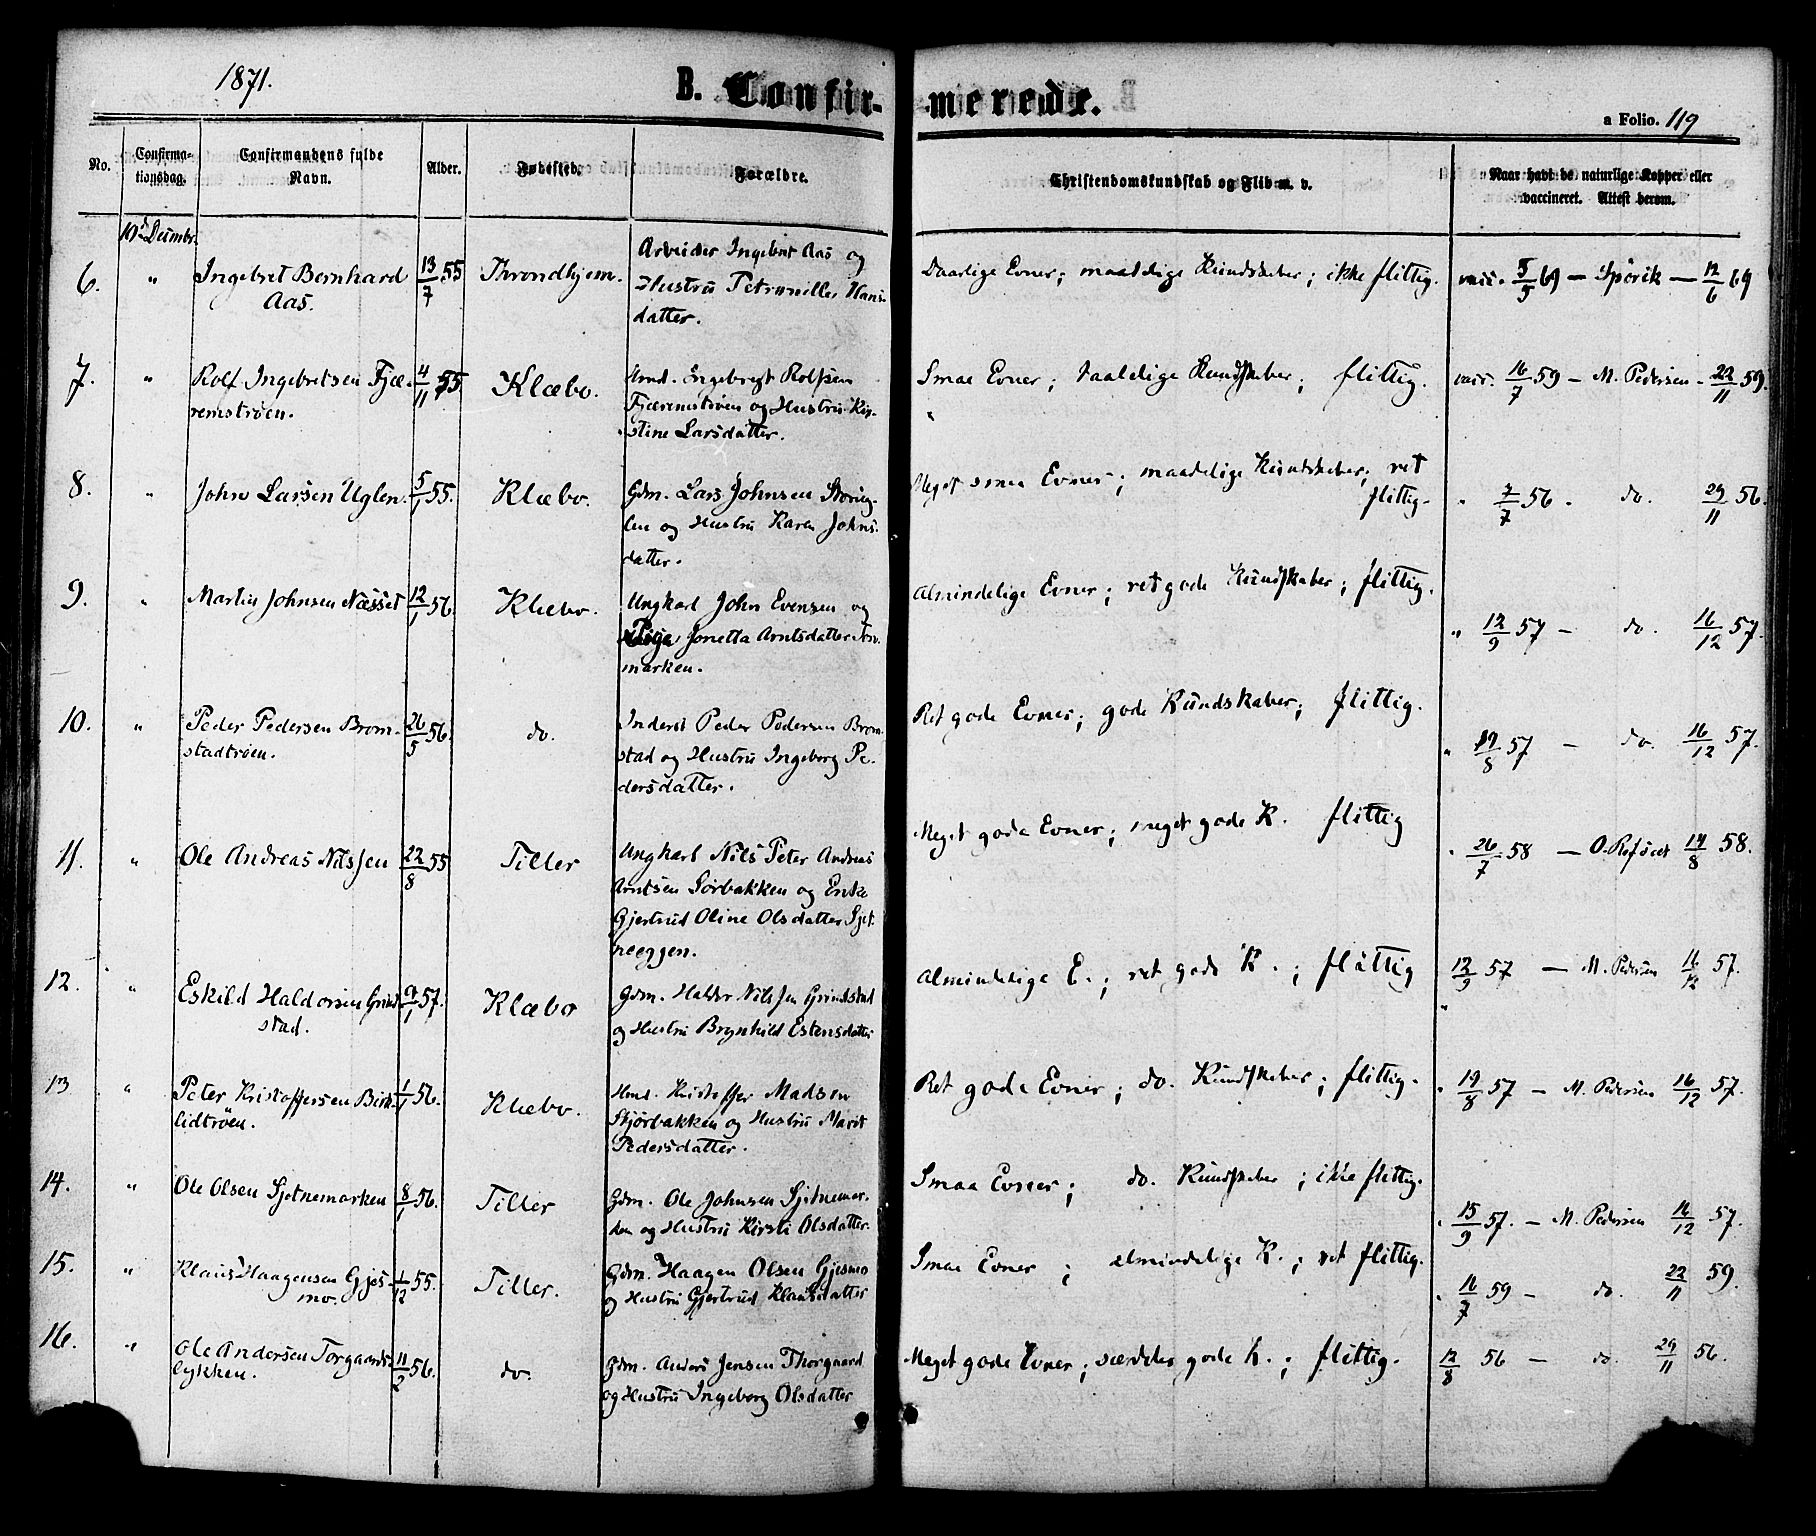 1871.
B. Confir-
merede.
a Folio. 119
No.
Confirma-
tionsdag.
Confirmandens fulde
Navn.
Alder.
Fødested.
Forældre.
Christendomskundskab og Flid m. v.
Naar havt de naturlige Kopper eller
vaccineret. Attest derom.
10de Decmbr.
6. " Ingebret Bernhard 13/7 55 Throndhjem. Arbeider Ingebret Aas og
Aas. Hustru Petronille Hans-
datter.
Daarlige Evner; maadelige Kundskaber; ikke flittig. vacc. 5/5 69 — Spörik — 12/6 69
7. " Rolf Ingebretsen Fjæ- 4/11 55 Klæbo. Hmd. Ingebrigt Rolfsen
remstrøen. Fjæremstrøen og Hustru Kir-
stine Larsdatter.
Smaa Evner; taalelige Kundskaber; flittig. vacc. 16/7 59 — M. Pedersen - 22/11 59.
8. " John Larsen Uglen. 5/1 55. Klæbo. Gdm. Lars Johnsen Storug-
len og Hustru Karen Johns-
datter.
Meget smaa Evner; maadelige Kundskaber; ret
flittig. " 7/7 56 - do. 29/11 56.
9. " Martin Johnsen Næsset 12/1 56. Klæbo. Ungkarl John Evensen og
Pige Jonetta Arntsdatter
marken.
Almindelige Evner; ret gode Kundskaber; flittig.
" 12/9 57 — do. 16/12 57.
10. " Peder Pedersen Brom- 26/5 56. do. Inderst Peder Pedersen Brom-
stadtrøen. stad og Hustru Ingeborg Pe-
dersdatter.
Ret gode Evner; gode Kundskaber; flittig.
" 19/8 57 — do. 16/12 57.
11. " Ole Andreas Nilssen 22/8 55 Tiller Ungkarl Nils Peter Andreas
Arntsen Sørbakken og Enke
Gjertrud Oline Olsdatter Sjet-
neeggen.
Meget gode Evner; meget gode K. flittig
" 26/7 58 — O. Refsaet 14/8 58.
12. " Eskild Haldorsen Grind- 9/1 57. Klæbo Gdm. Haldor Nilssen Grindstad
stad. og Hustru Brynhild Estensdatter
Almindelige E.; ret gode K.; flittig 12/9 57 — M. Pedersen 16/12 57.
"
13 " Peter Kristoffersen Birk- 1/1 56. Klæbo. Hmd. Kristoffer Madsen
lidtrøen. Skjørbakken og Hustru Marit
Pedersdatter.
Ret gode Evner; do. Kundskaber; flittig. " 19/8 57 — M. Pedersen 16/12 57.
14. " Ole Olsen Sjetnemarken 8/1 56. Tiller Gdm. Ole Johnsen Sjetnemar-
ken og Hustru Kirsti Olsdatter.
Smaa Evner; do. Kundskaber; ikke flittig.
" 15/9 57. — M. Pedersen 16/12 57.
15. " Klaus Haagensen Gjes- 1/12 55. Tiller. Gdm. Haagen Olsen Gjesmo
mo. og Hustru Gjertrud Klausdatter
Smaa Evner; almindelige K.; ret flittig.
" 16/7 59 — do. 22/11 59.
16. " Ole Andersen Torgaards- 11/2 56. do. Gdm. Anders Jensen Thorgaard
lykken. og Hustru Ingeborg Olsdatter
Meget gode Evner; særdeles gode K.; flittig. 12/8 56 — do. 29/11 56.